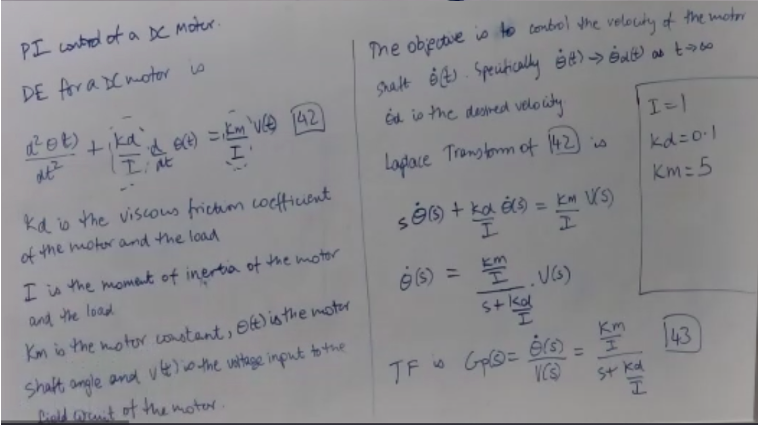 PI control of a DC Motor.
DE for a DC motor is
d²θ(t)/dt² + kd/I d/dt θ(t) = km/I V(t) [42]
kd is the viscous friction coefficient
of the motor and the load
I is the moment of inertia of the motor
and the load
Km is the motor constant, θ(t) is the motor
shaft angle and V(t) is the voltage input to the
field circuit of the motor.
The objective is to control the velocity of the motor
shaft θ̇(t). Specifically θ̇(t) → θ̇d(t) as t→∞
θ̇d is the desired velocity
Laplace Transform of [42] is
sθ̇(s) + kd/I θ̇(s) = km/I V(s)
θ̇(s) = (km/I)/(s + kd/I) . V(s)
TF is Gp(s) = θ̇(s)/V(s) = (km/I)/(s + kd/I) [43]
I = 1
kd = 0.1
Km = 5